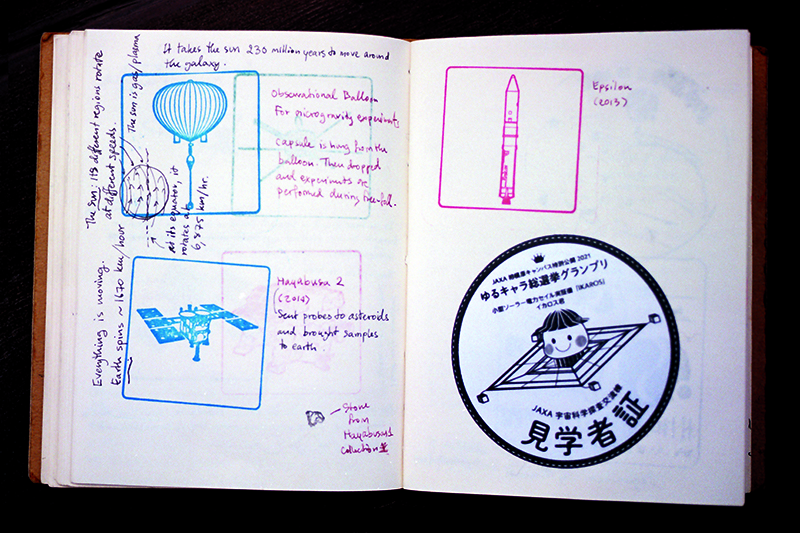 It takes the sun 230 million years to move around
the galaxy.
The sun is gas/plasma
The Sun: its different regions rotate
at different speeds.
at its equator, it
rotates at
6,875 km/hr.
Everything is moving.
Earth spins ~1670 km/hour
Observational Balloon
For microgravity experiments
capsule is hung from the
balloon. Then dropped
and experiments are
performed during free-fall.
Hayabusa 2
(2014)
Sent probes to asteroids
and brought samples
to earth.
Stone
from
Hayabusa1
Collection
Epsilon
(2013)
JAXA 相模原キャンパス特別公開 2021
ゆるキャラ総選挙グランプリ
小型ソーラー電力セイル実証機「IKAROS」
イカロス君
JAXA 宇宙科学探査交流棟
見学者証